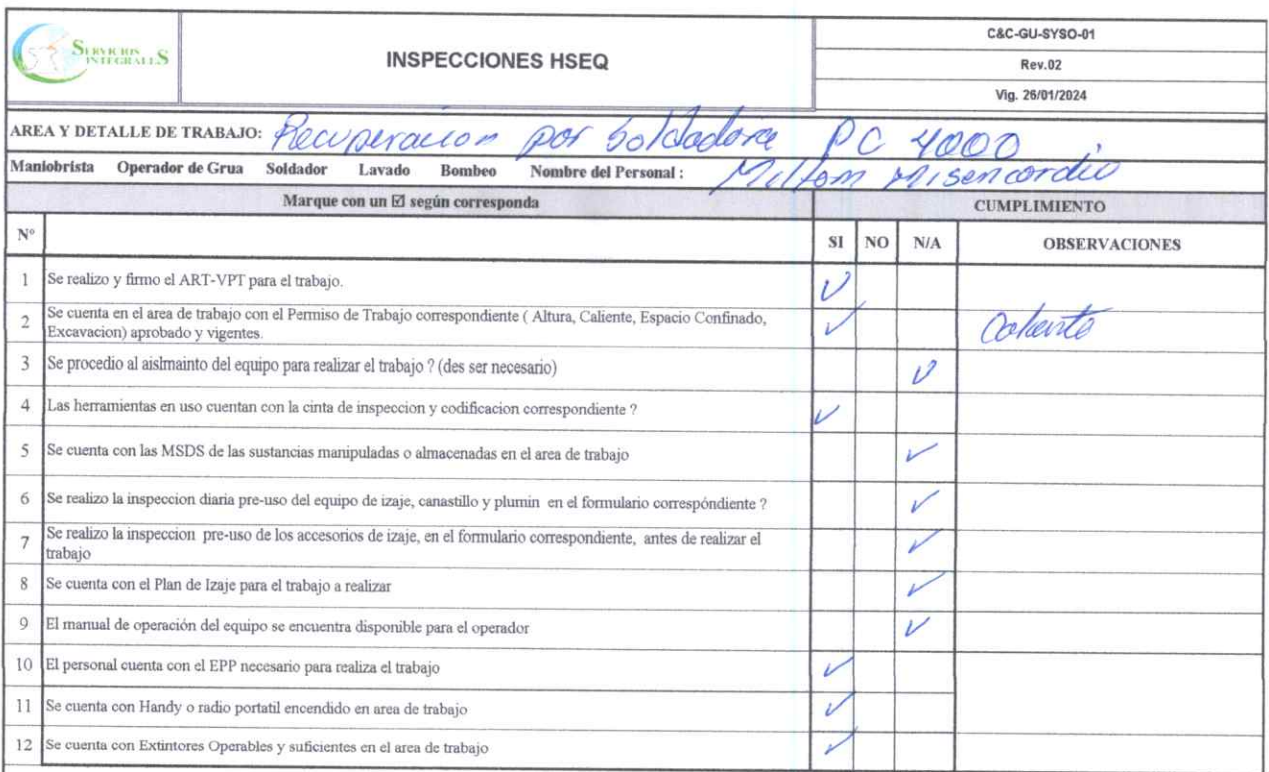 SERVICIOS
INTEGRALES
INSPECCIONES HSEQ
C&C-GU-SYSO-01
Rev.02
Vig. 26/01/2024
AREA Y DETALLE DE TRABAJO: Recuperacion por Soldadora PC 4000
Maniobrista Operador de Grua Soldador Lavado Bombeo Nombre del Personal : Miltom Misericordio
Marque con un ☑ según corresponda CUMPLIMIENTO
N° SI NO N/A OBSERVACIONES
1 Se realizo y firmo el ART-VPT para el trabajo. ✓
2 Se cuenta en el area de trabajo con el Permiso de Trabajo correspondiente ( Altura, Caliente, Espacio Confinado,
Excavacion) aprobado y vigentes. ✓ Caliente
3 Se procedio al aislmainto del equipo para realizar el trabajo ? (des ser necesario) ✓
4 Las herramientas en uso cuentan con la cinta de inspeccion y codificacion correspondiente ? ✓
5 Se cuenta con las MSDS de las sustancias manipuladas o almacenadas en el area de trabajo ✓
6 Se realizo la inspeccion diaria pre-uso del equipo de izaje, canastillo y plumin en el formulario correspóndiente ? ✓
7 Se realizo la inspeccion pre-uso de los accesorios de izaje, en el formulario correspondiente, antes de realizar el
trabajo ✓
8 Se cuenta con el Plan de Izaje para el trabajo a realizar ✓
9 El manual de operación del equipo se encuentra disponible para el operador ✓
10 El personal cuenta con el EPP necesario para realiza el trabajo ✓
11 Se cuenta con Handy o radio portatil encendido en area de trabajo ✓
12 Se cuenta con Extintores Operables y suficientes en el area de trabajo ✓